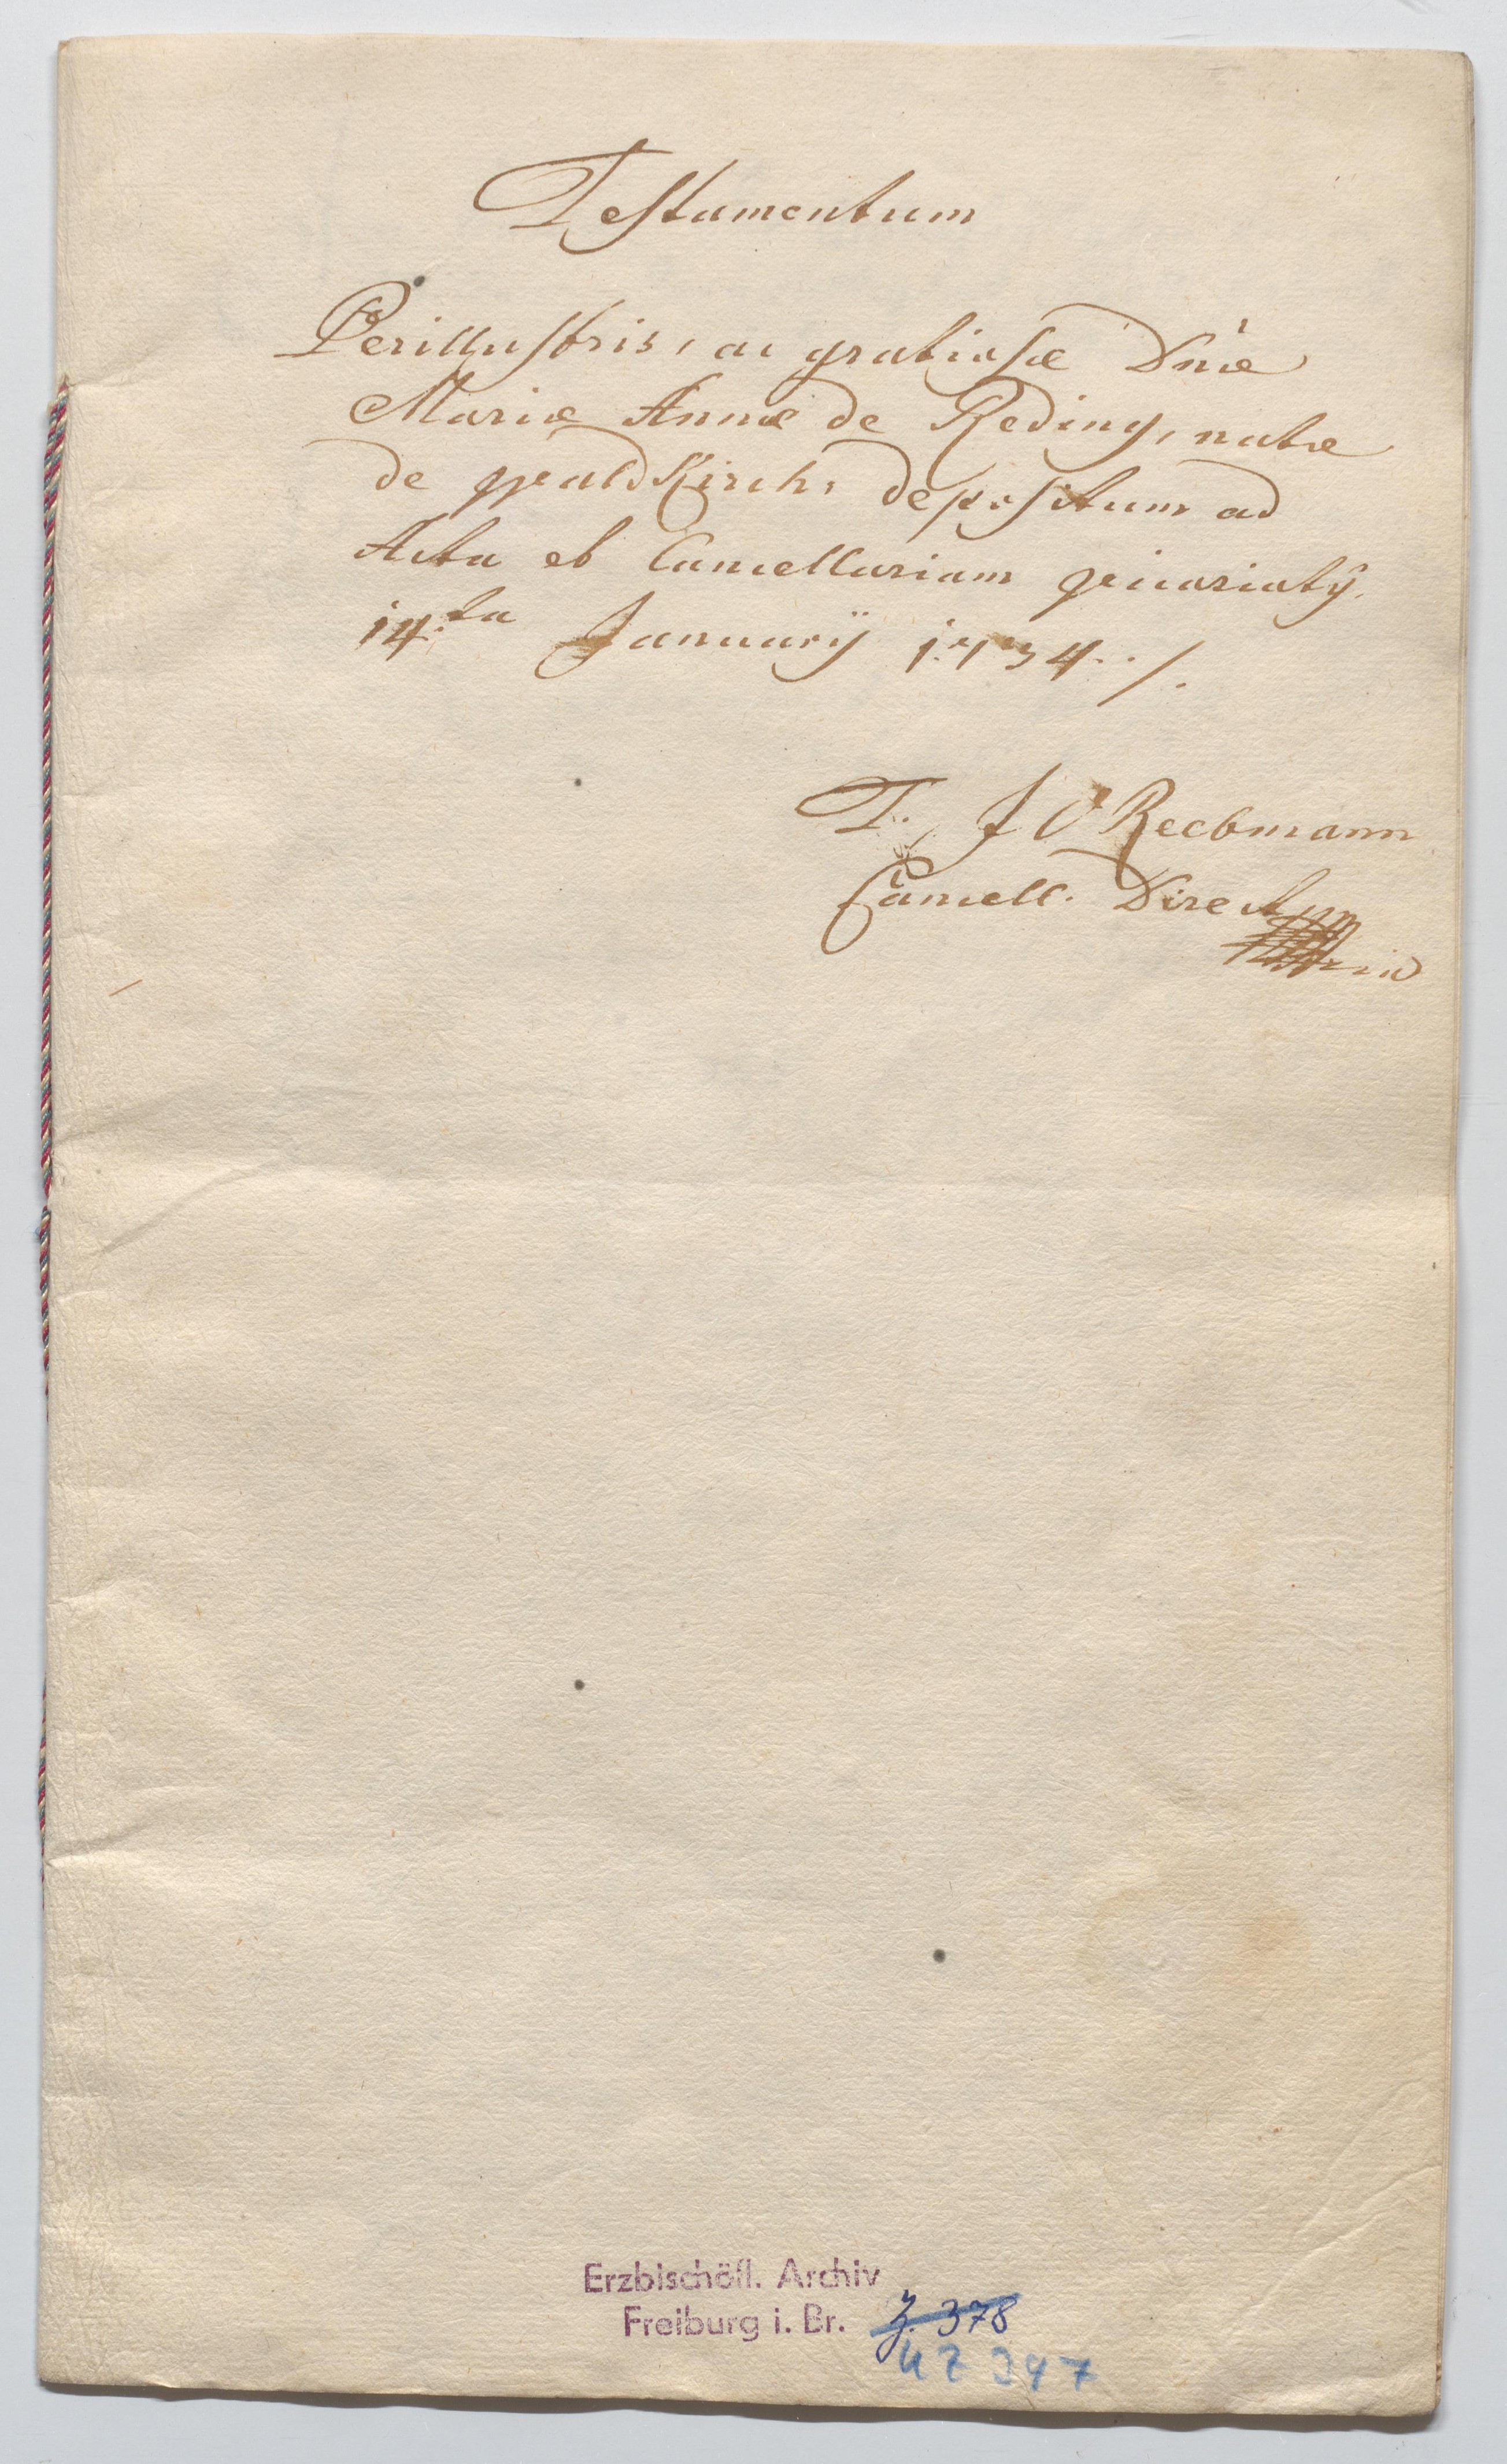 Testamentum
Perillustris, ac gratiosæ Dn̄æ
Mariæ Annæ de Reding, natæ
de Waldkirch, depositum ad
Acta et Cancellariam Vicariatûs
14.ta Januarij 1734 ./.
T. J Reebmann
Cancell. Direct
Erzbischöfl. Archiv
Freiburg i. Br. Z. 378
UZ 347